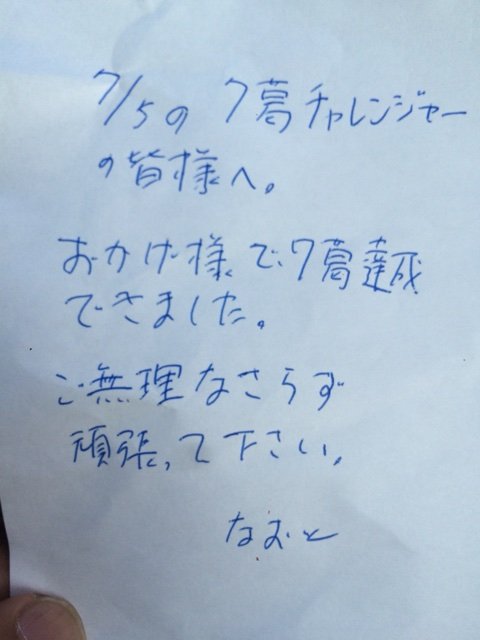 7/5の 7葛チャレンジャー
の皆様へ。
おかげ様で7葛達成
できました。
ご無理なさらず
頑張って下さい。
なおと